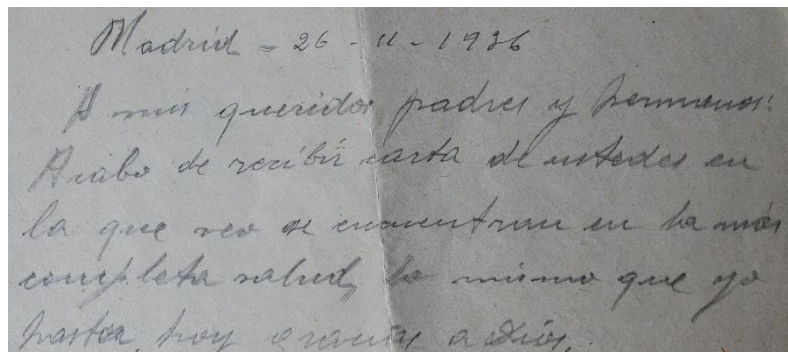 Madrid - 26 - 11 - 1936
A mis queridos padres y hermanos:
Acabo de recibir carta de ustedes en
la que veo se encuentran en la más
completa salud, lo mismo que yo
hasta hoy gracias a Dios.